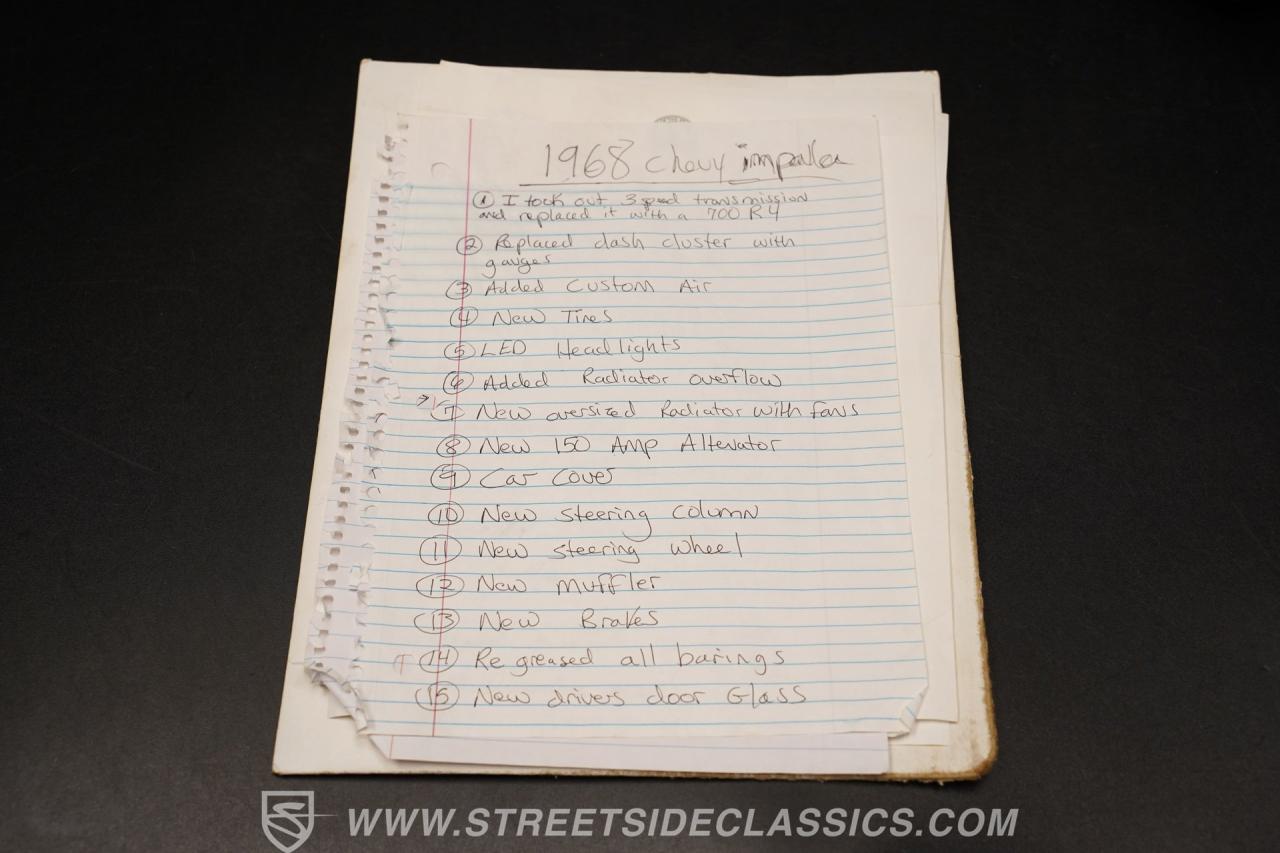 1968 Chevy impala
① I took out 3 speed transmission
and replaced it with a 700 R4
② Replaced dash cluster with
gauges
③ Added Custom Air
④ New Tires
⑤ LED Headlights
⑥ Added Radiator overflow
⑦ New oversized Radiator with fans
⑧ New 150 Amp Altenator
⑨ Car Cover
⑩ New steering column
⑪ New steering wheel
⑫ New muffler
⑬ New Brakes
⑭ Re greased all barings
⑮ New drivers door Glass
WWW.STREETSIDECLASSICS.COM